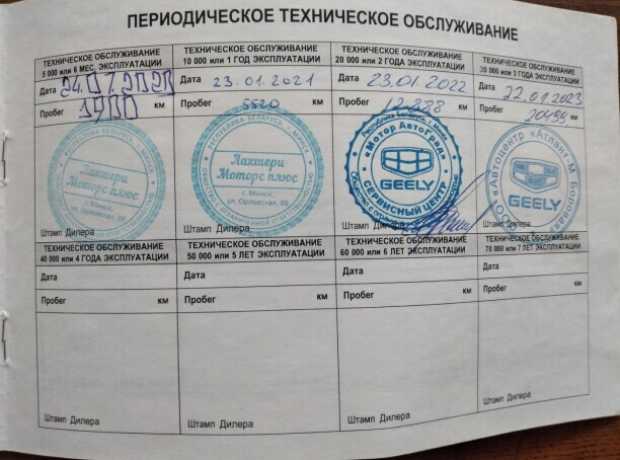 ПЕРИОДИЧЕСКОЕ ТЕХНИЧЕСКОЕ ОБСЛУЖИВАНИЕ
ТЕХНИЧЕСКОЕ ОБСЛУЖИВАНИЕ
5 000 или 6 МЕС. ЭКСПЛУАТАЦИИ
Дата 24.07.2020
Пробег 1900 км
РЕСПУБЛИКА БЕЛАРУСЬ, г. МИНСК
Лахтери
Моторс плюс
г. Минск,
Штамп Дилера
ТЕХНИЧЕСКОЕ ОБСЛУЖИВАНИЕ
10 000 или 1 ГОД ЭКСПЛУАТАЦИИ
Дата 23.01.2021
Пробег 5520 км
РЕСПУБЛИКА БЕЛАРУСЬ, г. МИНСК
Лахтери
Моторс плюс
г. Минск,
Штамп Дилера
ТЕХНИЧЕСКОЕ ОБСЛУЖИВАНИЕ
20 000 или 2 ГОДА ЭКСПЛУАТАЦИИ
Дата 23.01.2022
Пробег км
Республика Беларусь, г. Минск
«Мотор АвтоГрад»
GEELY
СЕРВИСНЫЙ ЦЕНТР
Штамп Дилера
ТЕХНИЧЕСКОЕ ОБСЛУЖИВАНИЕ
30 000 или 3 ГОДА ЭКСПЛУАТАЦИИ
Дата 22.01.2023
Пробег км
ООО «Автоцентр «Атлант-М
GEELY
Штамп Дилера
ТЕХНИЧЕСКОЕ ОБСЛУЖИВАНИЕ
40 000 или 4 ГОДА ЭКСПЛУАТАЦИИ
Дата
Пробег км
Штамп Дилера
ТЕХНИЧЕСКОЕ ОБСЛУЖИВАНИЕ
50 000 или 5 ЛЕТ ЭКСПЛУАТАЦИИ
Дата
Пробег км
Штамп Дилера
ТЕХНИЧЕСКОЕ ОБСЛУЖИВАНИЕ
60 000 или 6 ЛЕТ ЭКСПЛУАТАЦИИ
Дата
Пробег км
Штамп Дилера
ТЕХНИЧЕСКОЕ ОБСЛУЖИВАНИЕ
70 000 или 7 ЛЕТ ЭКСПЛУАТАЦИИ
Дата
Пробег км
Штамп Дилера